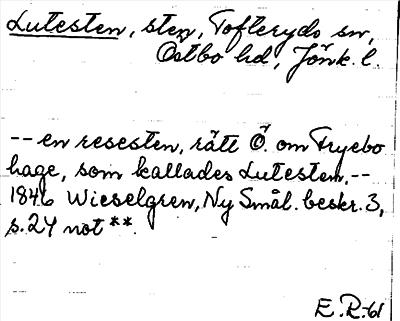 Lutesten, sten, Tofteryds sn,
Östbo hd, Jönk. l.
-- en resesten, rätt Ö. om Fryebo
hage, som kallades Lutesten.--
1846 Wieselgren, Ny Smål. beskr. 3,
s. 24 not **.
E.R.-61